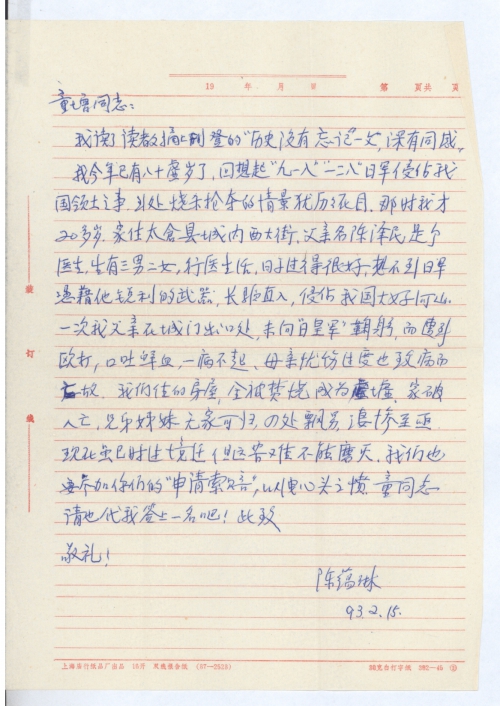 19 年 月 日 第 页共 页
童增同志:
我读了读者摘上刊登的"历史没有忘记"一文,深有同感。
我今年已有八十虚岁了,回想起"九一八""一二八"日军侵佔我
国领土之事,到处烧杀抢夺的情景犹历在目。那时我才
20多岁。家住太仓县城内西大街,父亲名陈泽民是个
医生,生有三男二女,行医生活,日子过得很好,想不到日军
凭藉他锐利的武器,长驱直入,侵佔我国大好河山。
一次我父亲在城门出口处,未向"日皇军"鞠躬,而遭到
欧打,口吐鲜血,一病不起、母亲忧伤过度也致病而
亡故。我们住的房屋,全被焚烧成为墟,家破
人亡,兄弟姊妹无家可归,四处飘另,悲惨至亟.
现在虽已时过境迁但这苦难不能磨灭。我们也
要参加你们的"申请索赔",以心头之愤 童同志
请也代我签上一名吧!此致
敬礼!
陈蕴琳
93.2.15.
装
订
线
上海客行纸品厂出品 16开 双线报告纸 (57-2523)